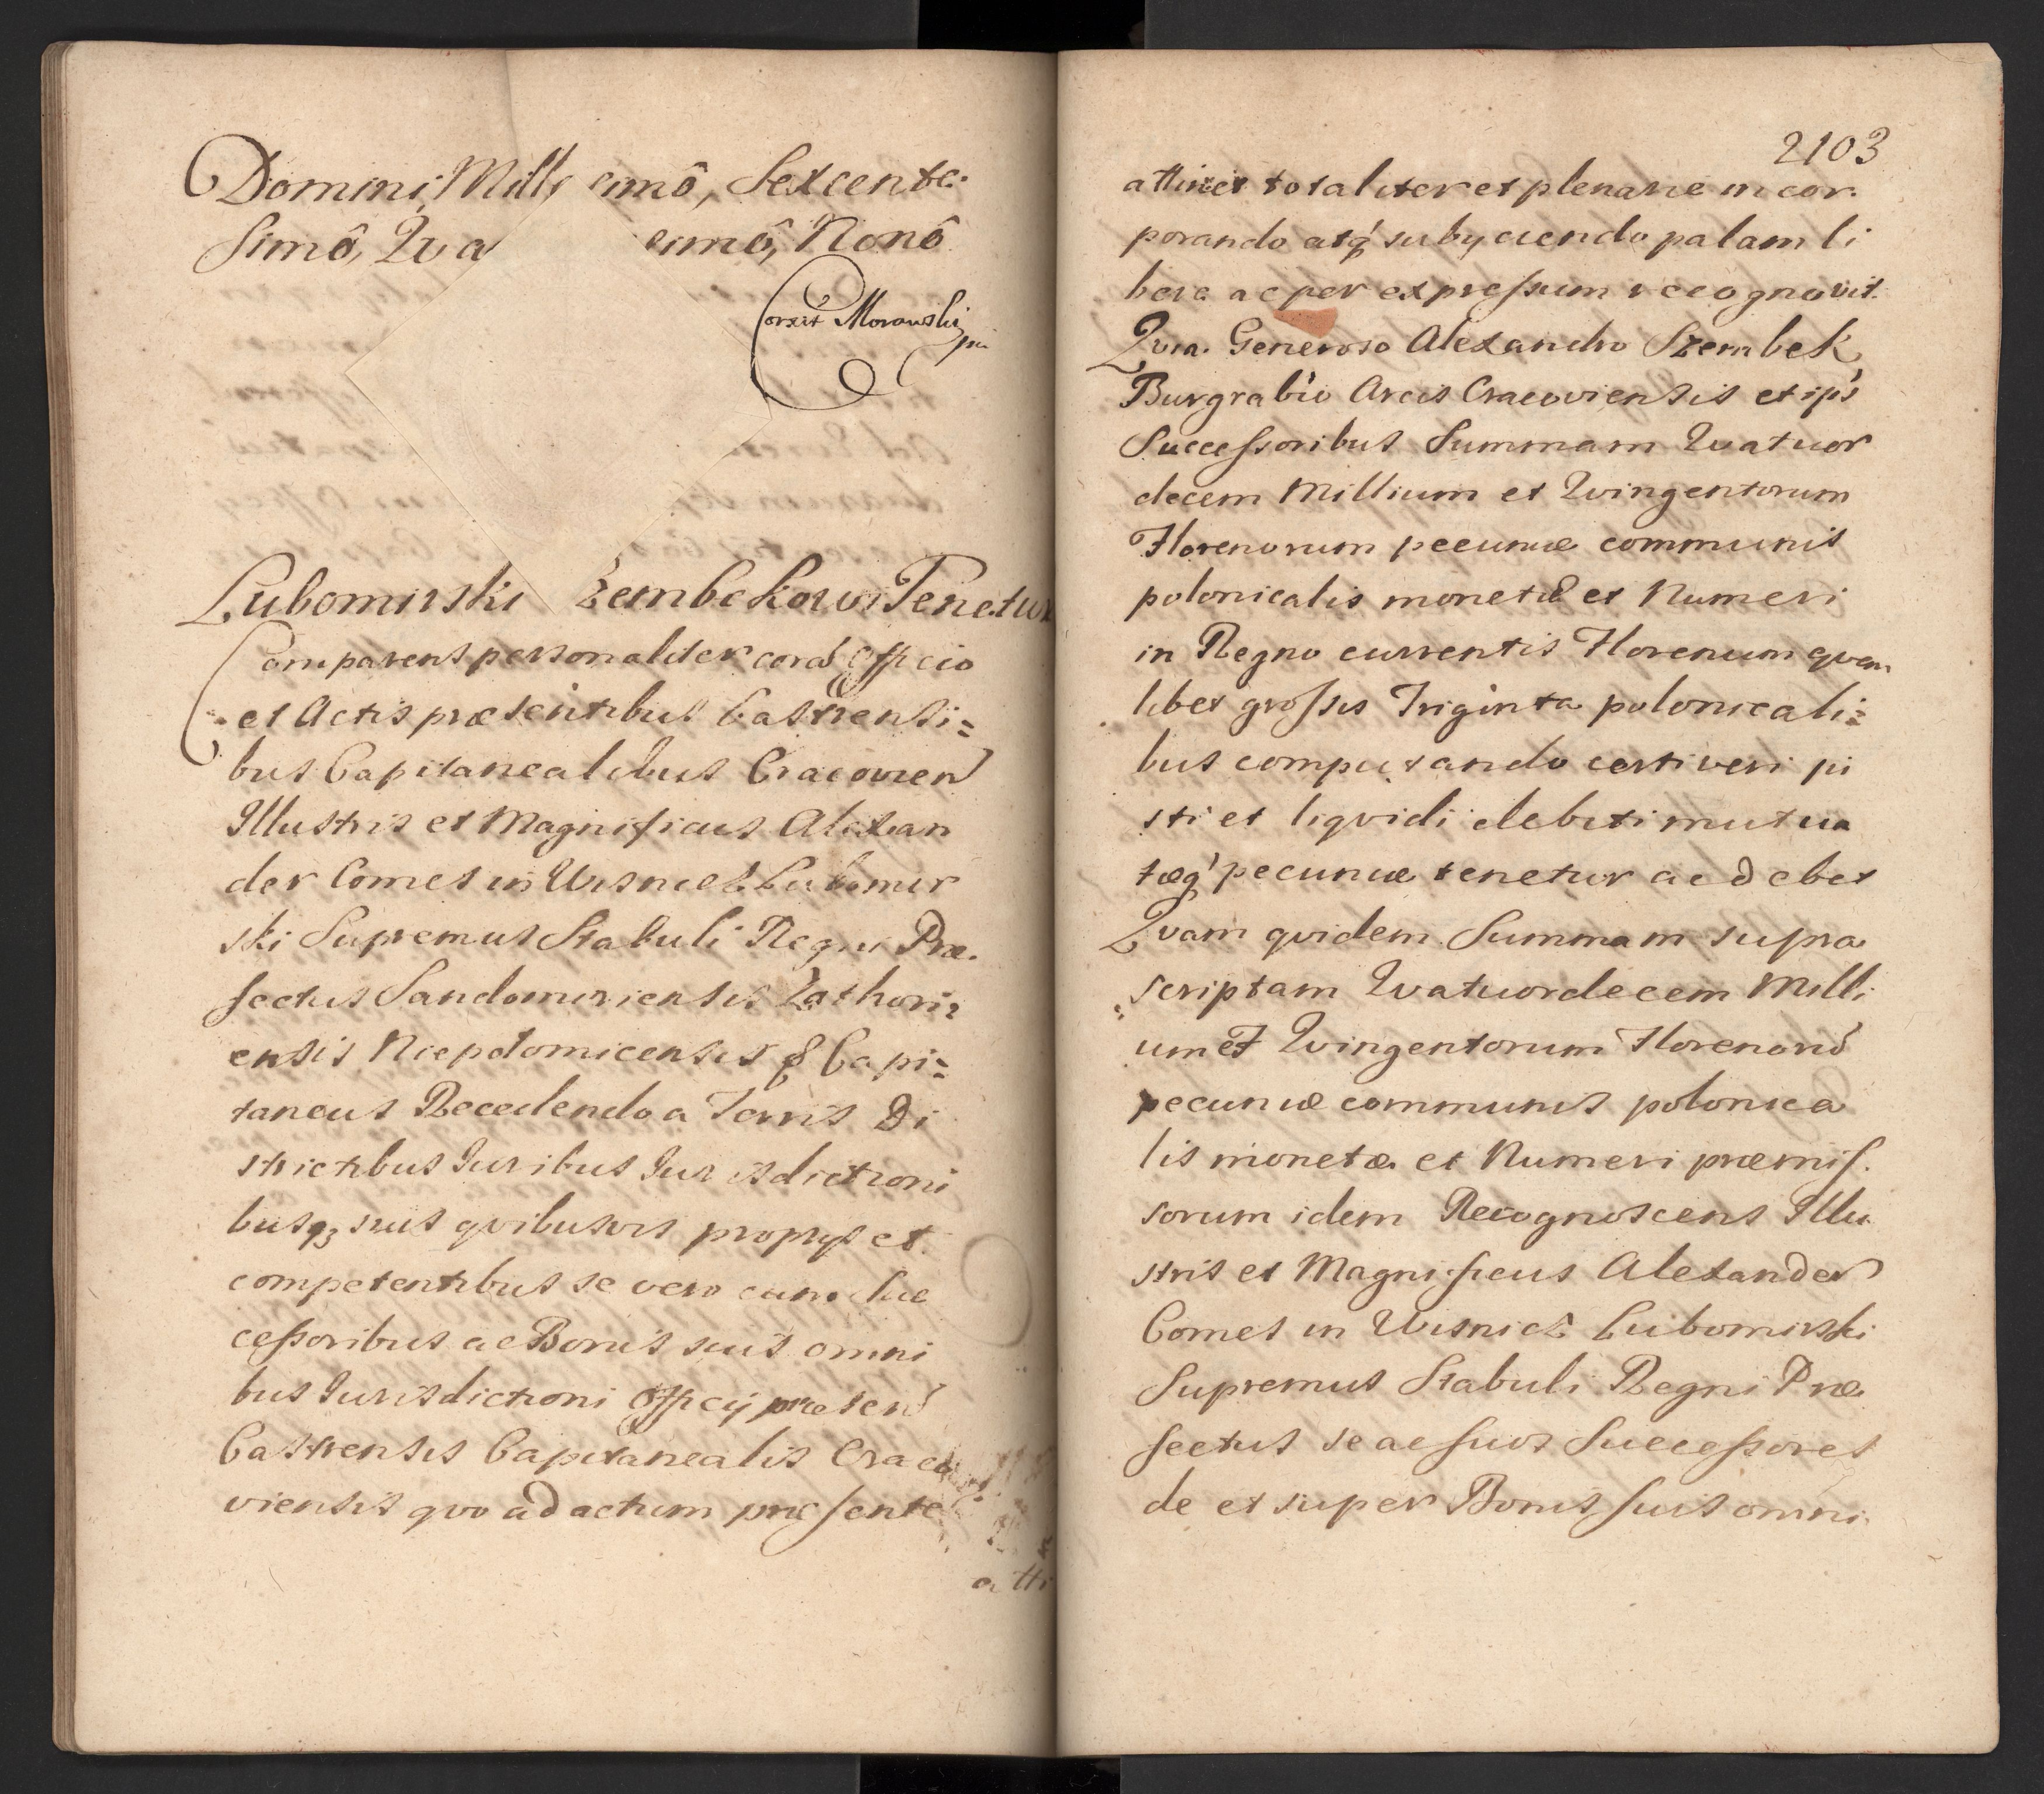 Domini, Mill imô, Sexcente.
simô, Qua imô, Nonô
Corxit Morawski
Lubomirski Zembekowi Tenetur
Comparens personaliter corã Officio
et Actis præsentibus Castrensi=
bus Capitanealibus Cracovien
Illustris et Magnificus Alexan
der Comes in Wisnicz Lubomir
ski Supremus Stabuli Regni Præ.
fectus Sandomiriensis Zathori=
ensis Niepolomicensis & Capi=
taneus Recedendo a Terris Di
strictibus Iuribus Iurisdictioni
busq3 suis qvibusvis proprys et
competentibus se vero cum suc
cessoribus ac Bonis suis omni
bus Iurisdictioni Officij præsen
Castrensis Capitanealis Craco
viensis qvo ad actum præsente
atti
2103
attinet totaliter et plenarie incor.
porando atq' subyciendo palam li
bere ac per expressum recognovit.
Qvia. Generoso Alexandro Szembek
Burgrabio Arcis Cracoviensis et ips
Successoribus Summam Quatuor
decem Millium et Qvingentorum
Florenorum pecuniæ communis
polonicalis monetæ et Numeri
in Regno currentis Florenum qvem
libet grossis Triginta polonicali=
bus computando certi veri ju
sti et liqvidi debiti mutua
tæq' pecuniæ tenetur ac debet
Qvam qvidem Summam supra
scriptam Quatuordecem Milli
um et Qvingentorum Florenorũ
pecuniæ communis polonica
lis monetæ et Numeri præmis.
sorum idem Recognoscens Illu
stris et Magnificus Alexander
Comes in Wisnicz Lubomirski
Supremus Stabuli Regni Præ
fectus se ac suos Successores
de et super Bonis suis omni